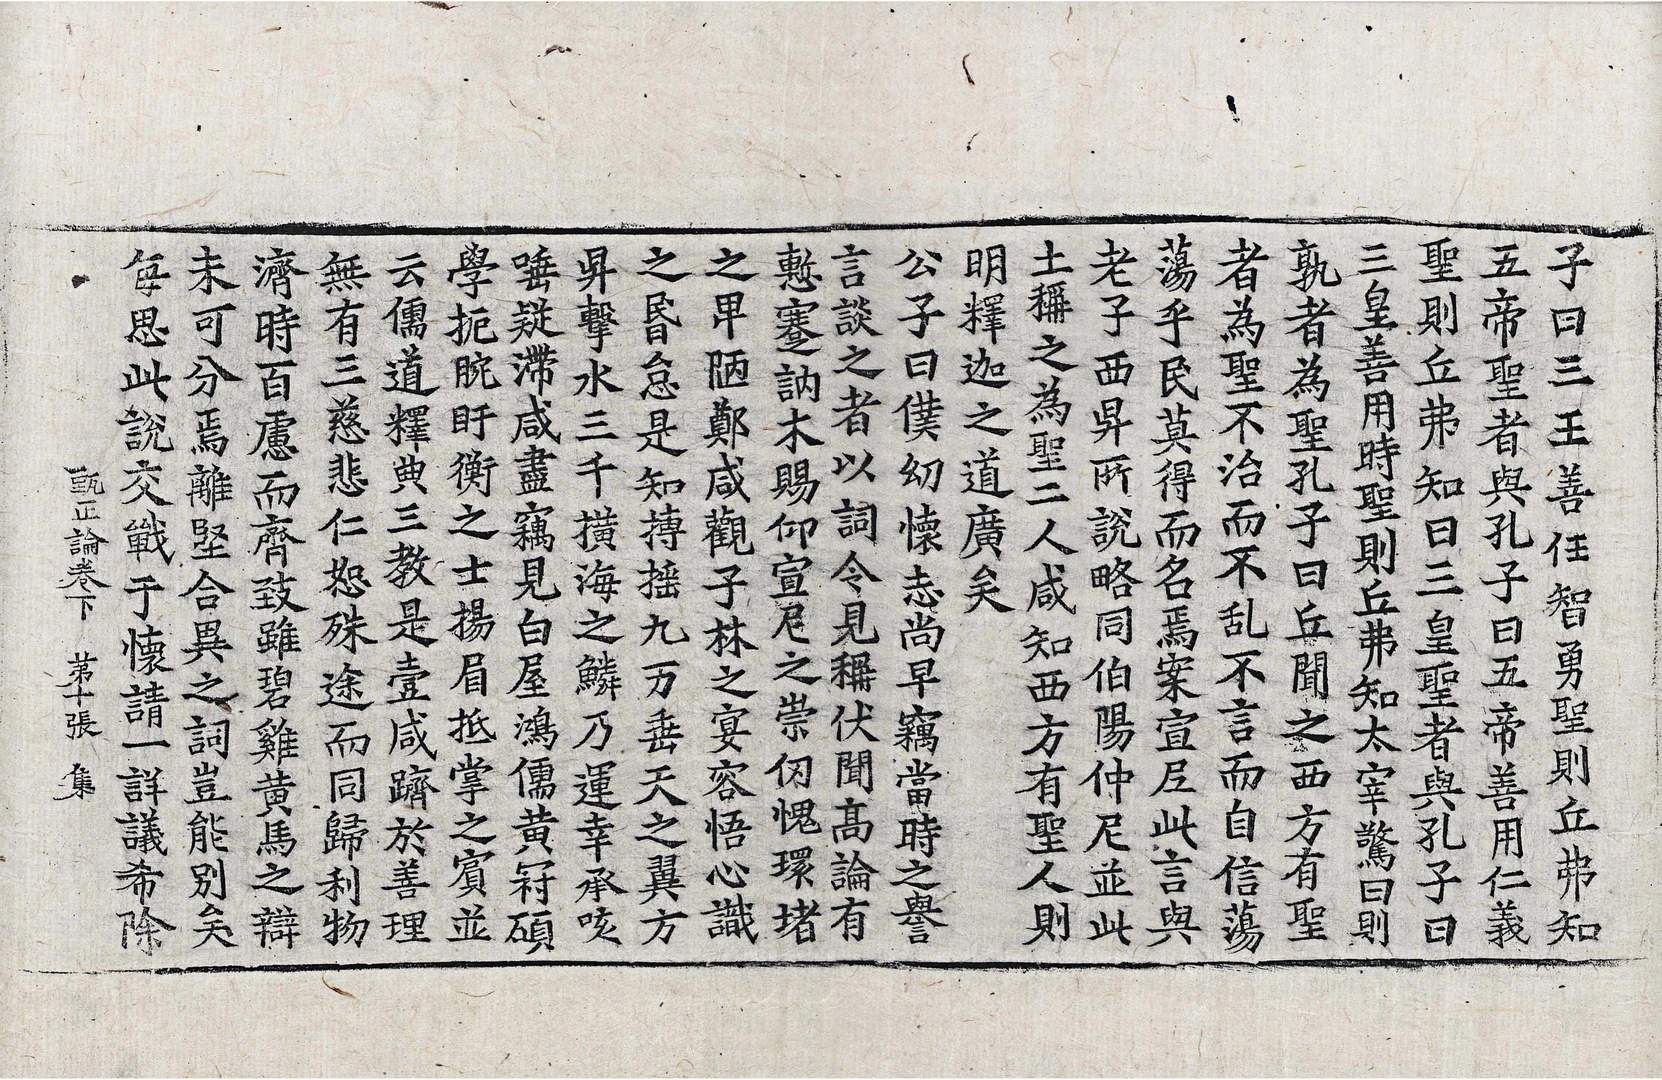 子曰三王善任智勇聖則丘弗知
五帝聖者與孔子曰五帝善用仁義
聖則丘弗知曰三皇聖者與孔子曰
三皇善用時聖則丘弗知太宰驚曰則
孰者為聖孔子曰丘聞之西方有聖
者為聖不治而不乱不言而自信蕩
蕩乎民莫得而名焉案宣尼此言與
老子西昇所說略同伯陽仲尼並此
土稱之為聖二人咸知西方有聖人則
明釋迦之道廣矣
公子曰僕幼懷志尚早竊當時之譽
言談之者以詞令見稱伏聞高論有
慙蹇訥木賜仰宣尼之崇仞愧環堵
之卑陋鄭咸觀子林之宴容悟心識
之昬怠是知摶搖九万垂天之翼方
昇擊水三千橫海之鱗乃運幸承咳
唾疑滯咸盡竊見白屋鴻儒黃冠碩
學扼腕盱衡之士揚眉抵掌之賓並
云儒道釋典三教是壹咸躋於善理
無有三慈悲仁恕殊途而同歸利物
濟時百慮而齊致雖碧雞黃馬之辯
未可分焉離堅合異之詞豈能別矣
每思此說交戰于懷請一詳議希除
甄正論卷下　第十張　集